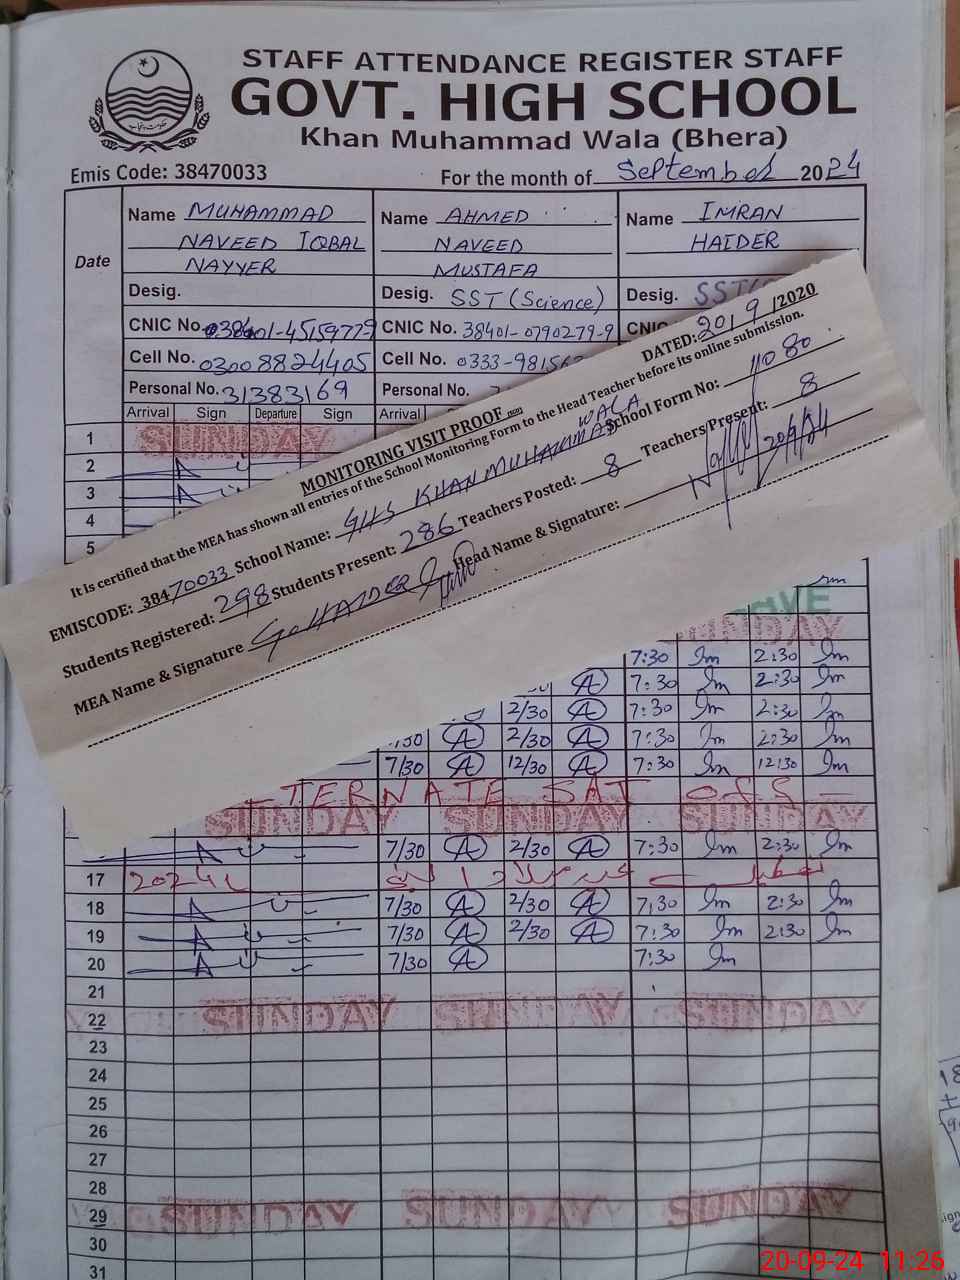 STAFF ATTENDANCE REGISTER STAFF
GOVT. HIGH SCHOOL
Khan Muhammad Wala (Bhera)
Emis Code: 38470033
For the month of September 2024
Date
Name MUHAMMAD NAVEED IQBAL NAYYER
Name AHMED NAVEED MUSTAFA
Name IMRAN HAIDER
Desig.
Desig. SST (Science)
Desig. SST
CNIC No. 38401-4515977-9
CNIC No. 38401-0790279-9
CNIC
Cell No. 03008824405
Cell No. 0333-98156
Personal No. 31383169
Personal No.
Arrival Sign Departure Sign Arrival
1 SUNDAY
2
3
4
5
MONITORING VISIT PROOF
DATED: 20/9/2020
It is certified that the MEA has shown all entries of the School Monitoring Form to the Head Teacher before its online submission.
EMISCODE: 38470033 School Name: GHS KHAN MUHAMMAD WALA School Form No: 11080
Students Registered: 298 Students Present: 286 Teachers Posted: 8 Teachers Present: 8
MEA Name & Signature G. HAIDER Head Name & Signature: 20/9/24
SUNDAY
7:30 Im 2:30 Im
A 7:30 Im 2:30 Im
2/30 A 7:30 Im 2:30 Im
7/30 A 2/30 A 7:30 Im 2:30 Im
7/30 A 12/30 A 7:30 Im 12:30 Im
TERNATE SAT OFF
SUNDAY SUNDAY SUNDAY
7/30 A 2/30 A 7:30 Im 2:30 Im
17 تعطیل عید میلاد النبی 2024
18 7/30 A 2/30 A 7:30 Im 2:30 Im
19 7/30 A 2/30 A 7:30 Im 2:30 Im
20 7/30 A 7:30 Im
21
22 SUNDAY SUNDAY SUNDAY
23
24
25
26
27
28
29 SUNDAY SUNDAY SUNDAY
30
31
20-09-24 11:26